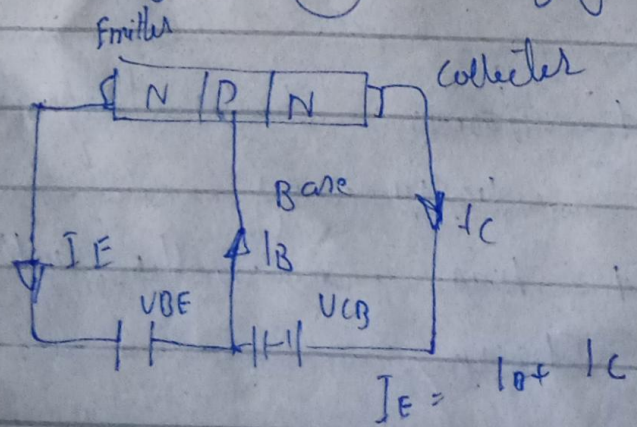 Emitter
N P N
Collecter
Base
IE
IB
IC
VBE
VCB
IE = IB + IC